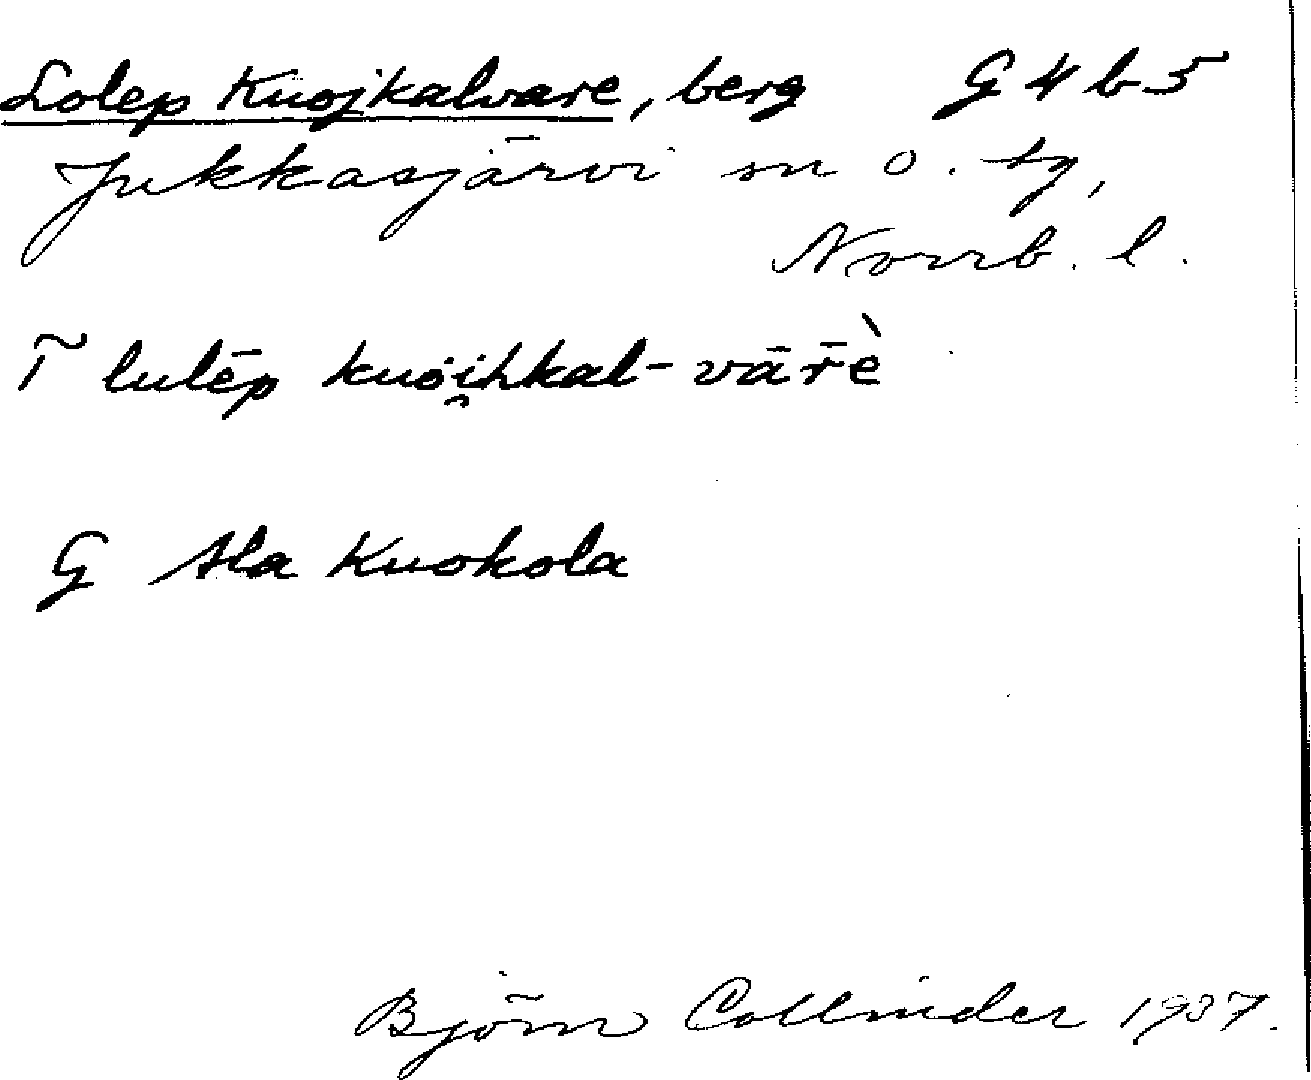 Lolep Kuojkalvare, berg G4b5
Jukkasjärvi sn o. tg,
Norrb. l.
T lulēp kuo̯i̯hkal-vāř̄è
G Ala Kuokola
Björn Collinder 1937.